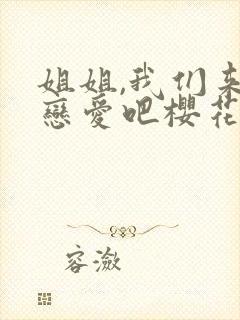 姐姐,我们来
戀愛吧櫻花
容潋